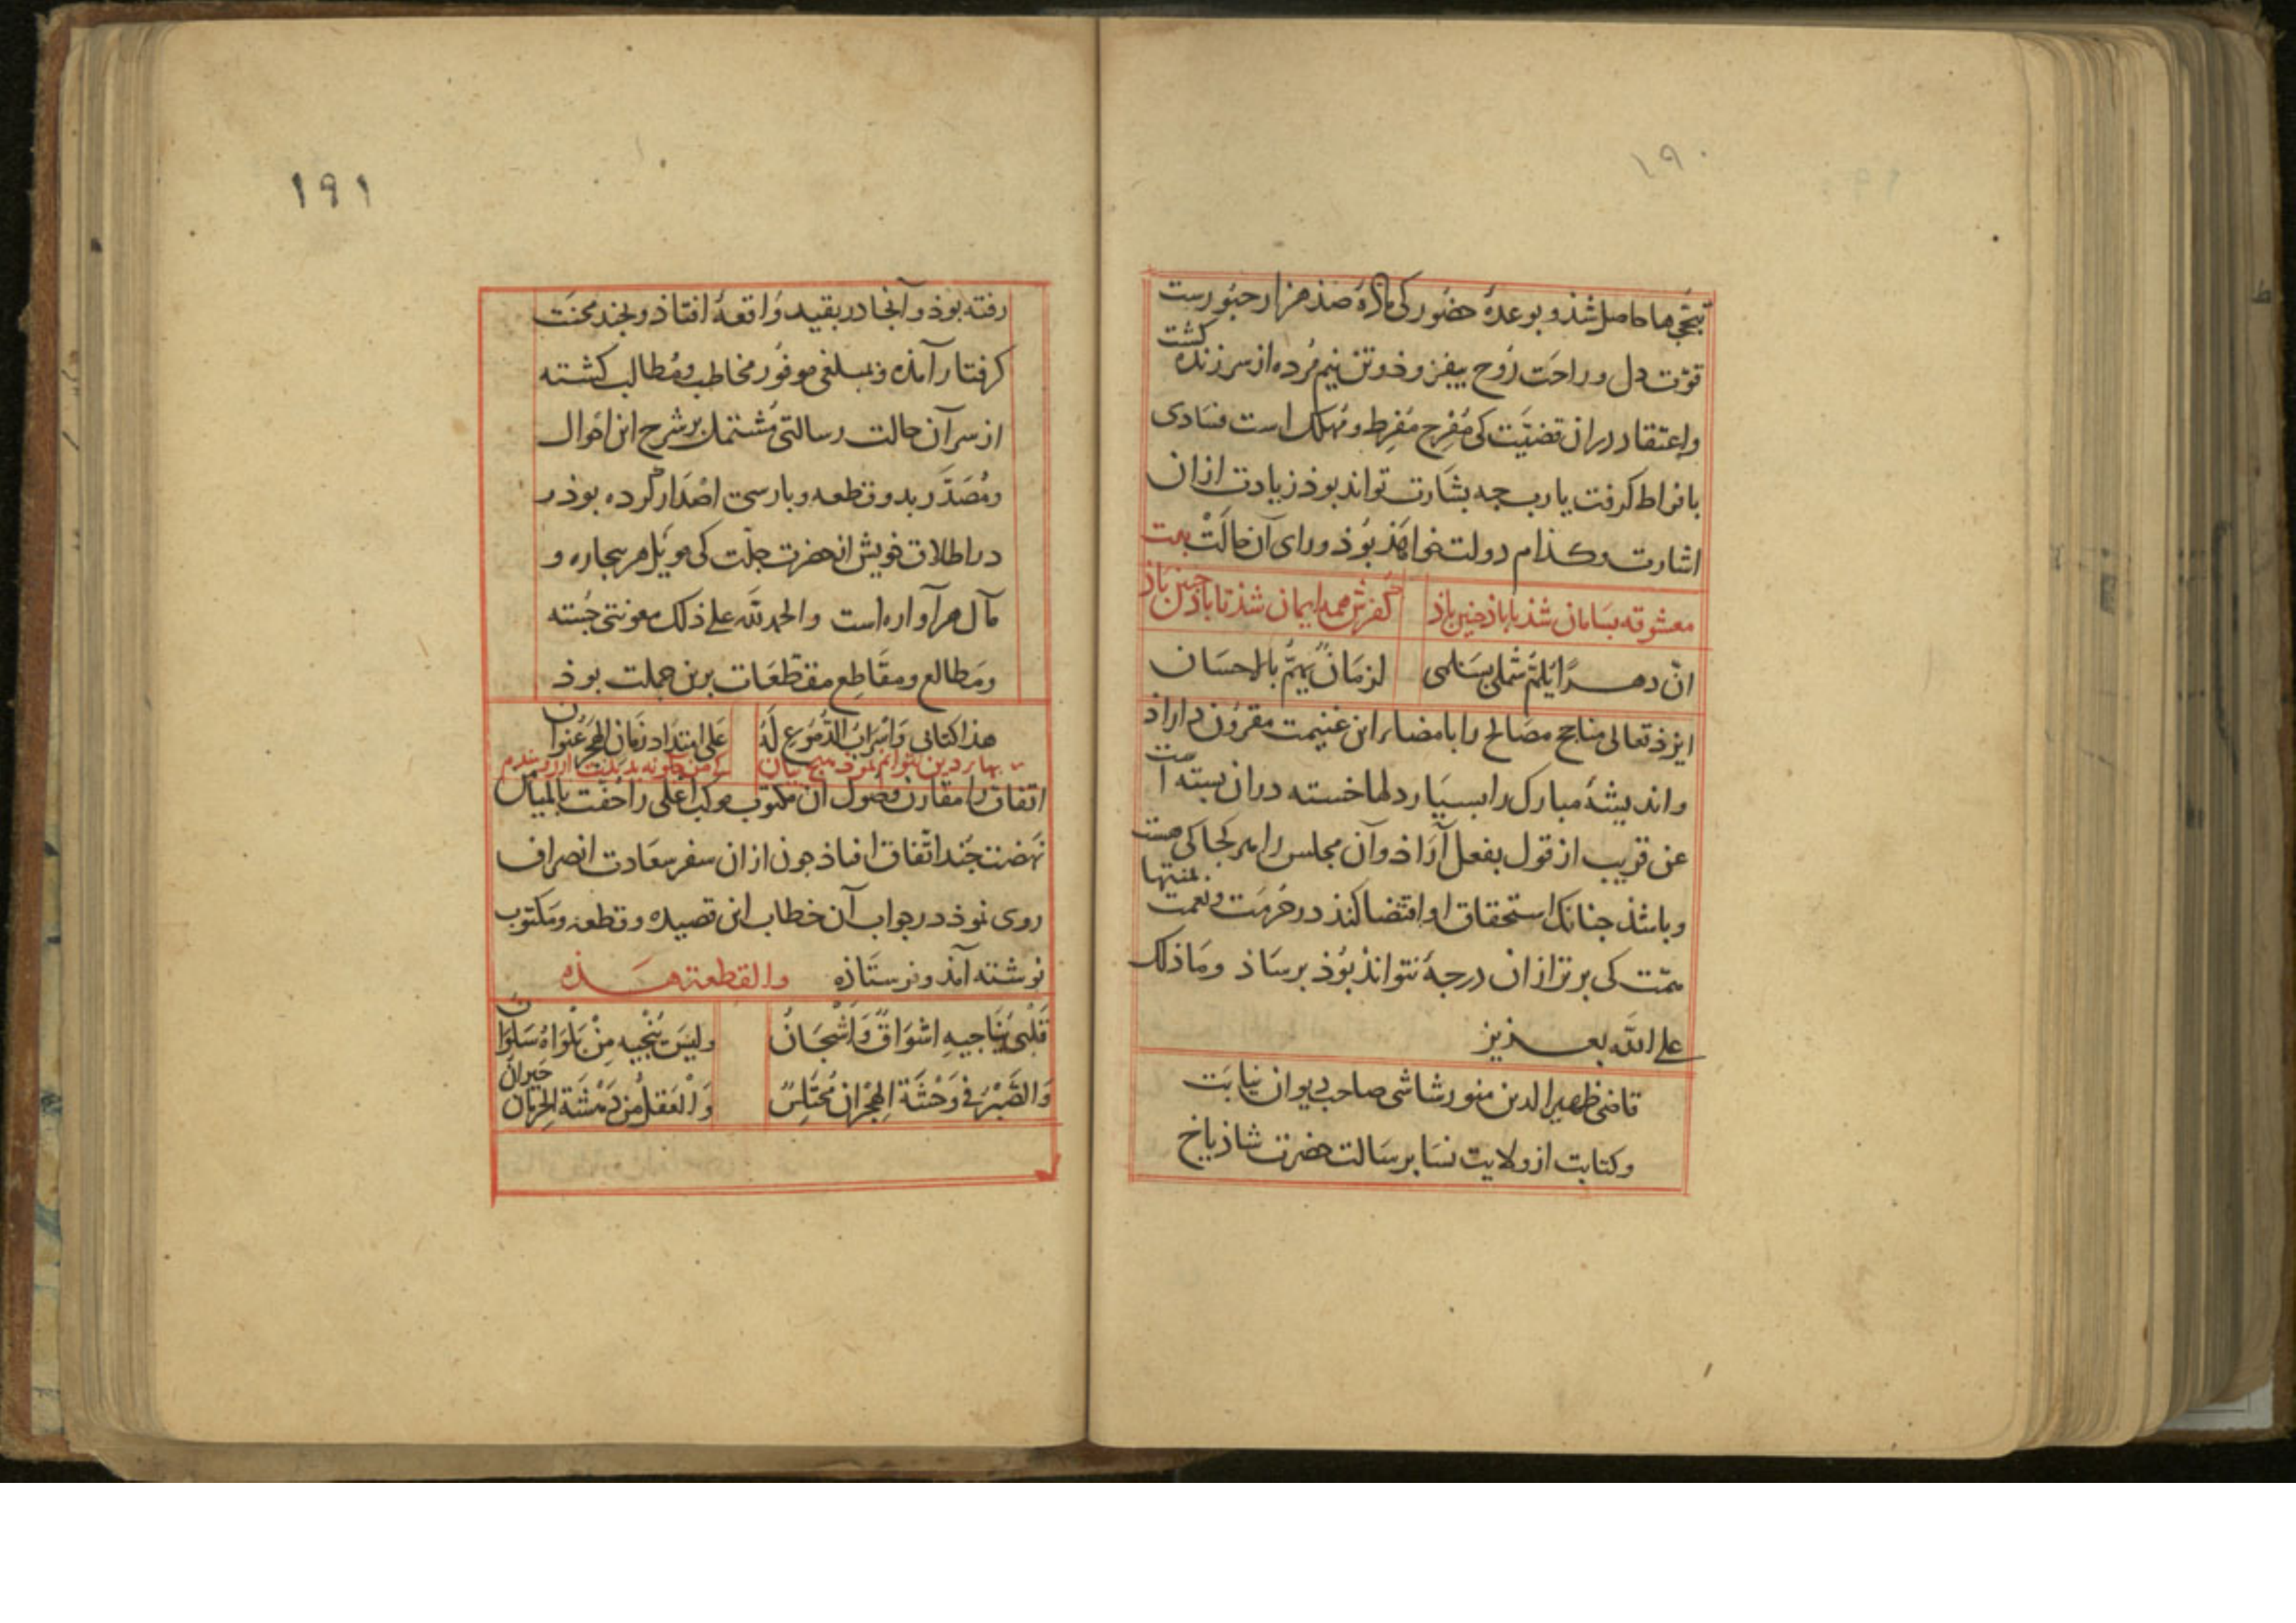 ١٩٠
تبجّحها حاصل شذ و بوعدهٔ حضور کی مادهٔ صذ هزار حبورست
قوّت دل و راحت رُوح بیفزوذ و تن نیم مُرده از سر زنده کشت
و اعتقاد در ان قضیّت کی مُفرِح مُفرِط و مُهلک است فسادی
بافراط کرفت یا رب چه بشارت تواند بوذ زیادت از ان
اشارت و کذام دولت خواهذ بُوذ و رای آن حالت بیت
معشوقه بسامان شذ تا باذ چنین باذ کفرش همه ایمان شذ تا باذ چنین باذ
انّ دهرًا یَلُمّ شَملی بسَلمی لزمانٌ یهمُّ بالاحسان
ایزذ تعالی مناجح مصالح را بامضاء این غنیمت مقرون داراذ
و اندیشهٔ مبارک را بسیار دلها خسته در ان بسته است
عن قریب از قول بفعل آراذ و آن مجلس را هر کجا کی هست
و باشذ چنانک استحقاق او اقتضا کند در حُرمت و نعمت بمنتهای
همّت کی برتر از ان درجهٔ نتوانذ بُوذ برساذ و ما ذلک
علی الله بعزیز
قاضی ظهیر الدین منور شاشی صاحب دیوان نیابت
و کتابت از ولایت نسا برسالت حضرت شاذیاخ
١٩١
رفته بوذ و آنجا در بقید واقعهٔ افتاذ و بجند محنت
کرفتار آمذه و بمبلغی موفور مخاطب و مُطالب کشته
از سر آن حالت رسالتی مُشتمل بر شرح این احوال
و مُصَدَّر بدو قطعه و بارسی اصدار کرده بوذ و
در اطلاق خویش از حضرت جلّت کی موئل هر بیچاره و
مآل هر آواره است و الحمد لله علی ذلک معونتی جُسته
و مَطالع و مَقاطع مقطّعات برین جملت بوذ
هذا کتابی وَ اَسرابُ الدّموع لَهُ عَلی امتداد زمان الهجر عُنوان
اتفاق را مقارن وصول ان مکتوب موکب اعلی را خفت بالمیامن
نهضت جُند اتّفاق افتاذ چون از ان سفر سعادت انصراف
روی نموذ در جواب آن خطاب این قصیده و قطعه و مکتوب
نوشته آمذ و فرستاذه والقطعة هذه
قَلبی یُناجیهِ اشواقٌ وَ اَشجانُ و لیسَ یُنجیه مِنْ بَلواهُ سَلوان
وَ الصَّبرُ فی وَحشَة الهِجران مُختَلِسٌ وَ العَقلُ من دَهشَة الحرمان حَیرانُ